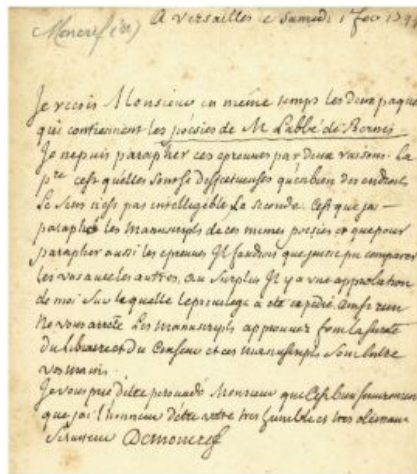 A Versailles le Samedi 1 fev 17
Moncrif
Je reçois Monsieur en même temps les deux paque
qui contiennent les poésies de M. Labbé de Bernis
Je ne puis parapher ces epreuves par deux raisons. La
p.re c'est quelles sont si deffectueuses qu'en bien des endroits
Le sens n'est pas intellegible La seconde. C'est que jai
paraphé les manuscripts de ces memes poesies et que pour
parapher aussi les epreuves Il faudroit que jeusse pu comparer
les unes avec les autres, au surplus Il y a une approbation
de moi sur laquelle le privilege a eté expedié ainsi rien
Ne vous arrete Les manuscripts approuvez font la sureté
du libraire et du Censeur et ces manuscripts sont entre
vos mains.
Je vous prie d'etre persuadé Monsieur que C'est bien sincerement
que jai l'honneur d'etre votre tres humble et tres obeissant
Serviteur Demoncrif